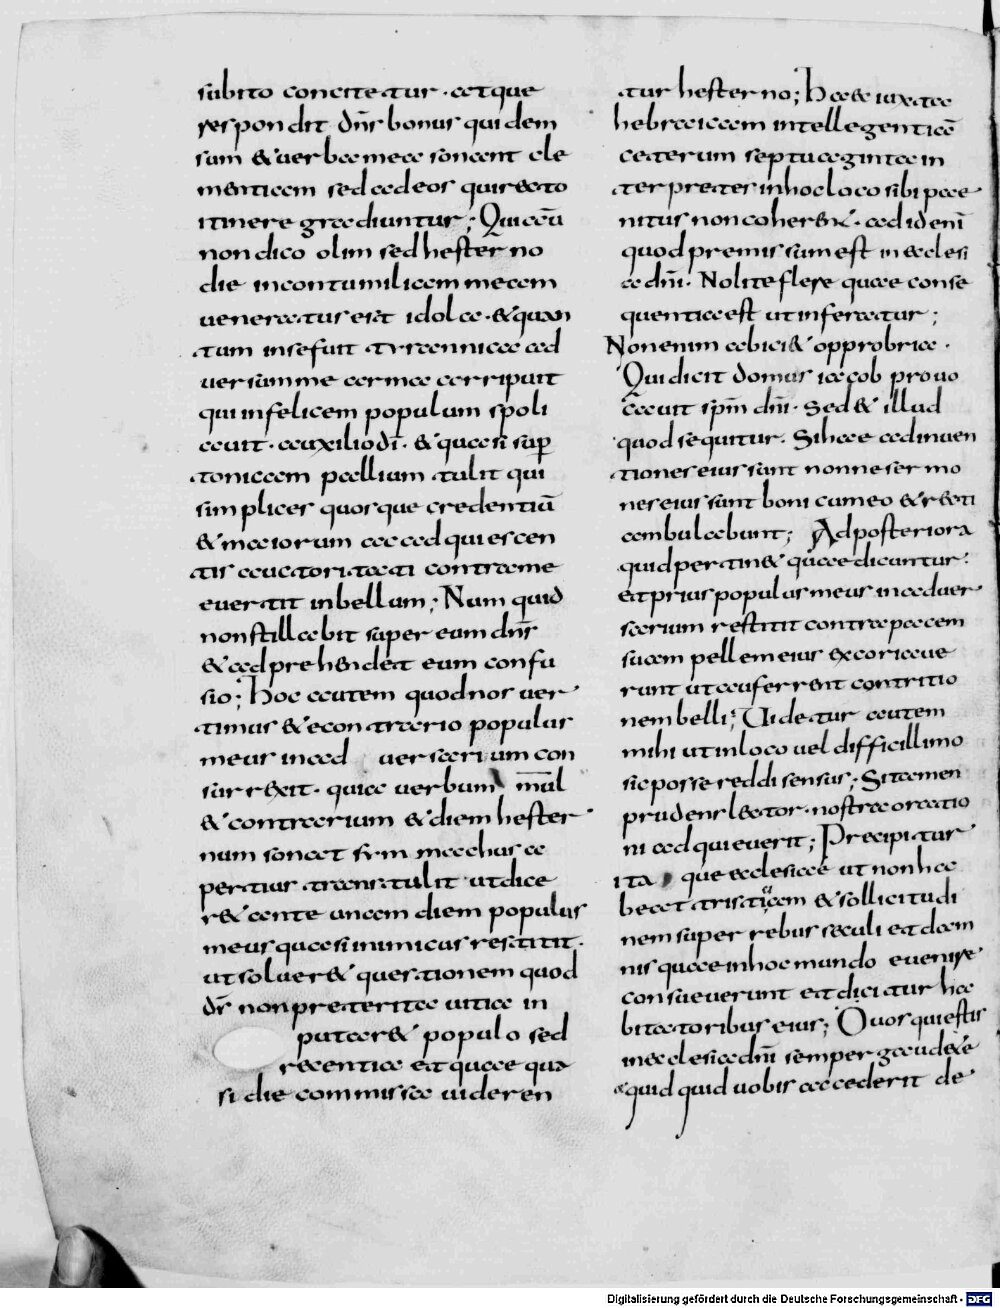 subito concitatur · atque
respondit dn̄s bonus quidem
sum & uerba mea sonant cle
mentiam sed ad eos qui recto
itinere gradiuntur; Qui cū
non dico olim sed hesterno
die in contumiliam meam
ueneratur eiat idola · & quan
tum in se fuit tyrannica ad
uersum me arma arripuit
qui infelicem populum spoli
auit · auxilio dī · & quasi sup̄
tonicam pallium tulit qui
simplices quosque credentiū
& maiorum acadquiescen
tis auctoritati contra me
euertit in bellum; Num quid
non stillabit super eum dn̄s
& adprehendet eum confu
sio; Hoc autem quod nos uer
timus & e contrario populus
meus in ad uersarium con
surrexit · quia uerbum m̄ul
& contrarium & diem hester
num sonat sym machus a
pertius transtulit ut dice
r& ante unam diem populus
meus quasi inimicus restitit ·
ut soluer& questionem quod
dn̄s non preterita uitia in
putar& populo sed
recentia et quae qua
si die commissa uideren
tur hesterno; Haec iuxta
hebraicam intellegentiā
ceterum septuaginta in
terpretes in hoc loco sibi pae
nitus non coher&N · ad id enī
quod premissum est in ecclesi
a dn̄i · Nolite flere quae conse
quentia est ut inferatur;
Non enim abici& opprobria ·
Qui dicit domus iacob prouo
cauit spm̄ dn̄i · Sed & illud
quod sequitur · Si haec adinuen
tiones eius sunt nonne sermo
nes eius sunt boni cum eo & recti
ambulabunt; Ad posteriora
quid pertin& quae dicuntur ·
et prius populus meus in aduer
sarium restitit contra pacem
suam pellem eius excoriaue
runt ut auferrent contritio
nem belli; Uidetur autem
mihi ut in loco uel difficillimo
sic posse reddi sensus; Si tamen
prudens lector · nostrae oratio
ni adquieuerit; Precipitur
ita que ecclesiae ut non ha
beat tristitiam & sollicitudi
nem super rebus saeculi et dam
nis quae in hoc mundo euenire
consueuerunt et dicitur ha
bitatoribus eius; O uos qui estis
in ecclesia dn̄i semper gaudete
& quid quid uobis acciderit de
Digitalisierung gefördert durch die Deutsche Forschungsgemeinschaft - DFG